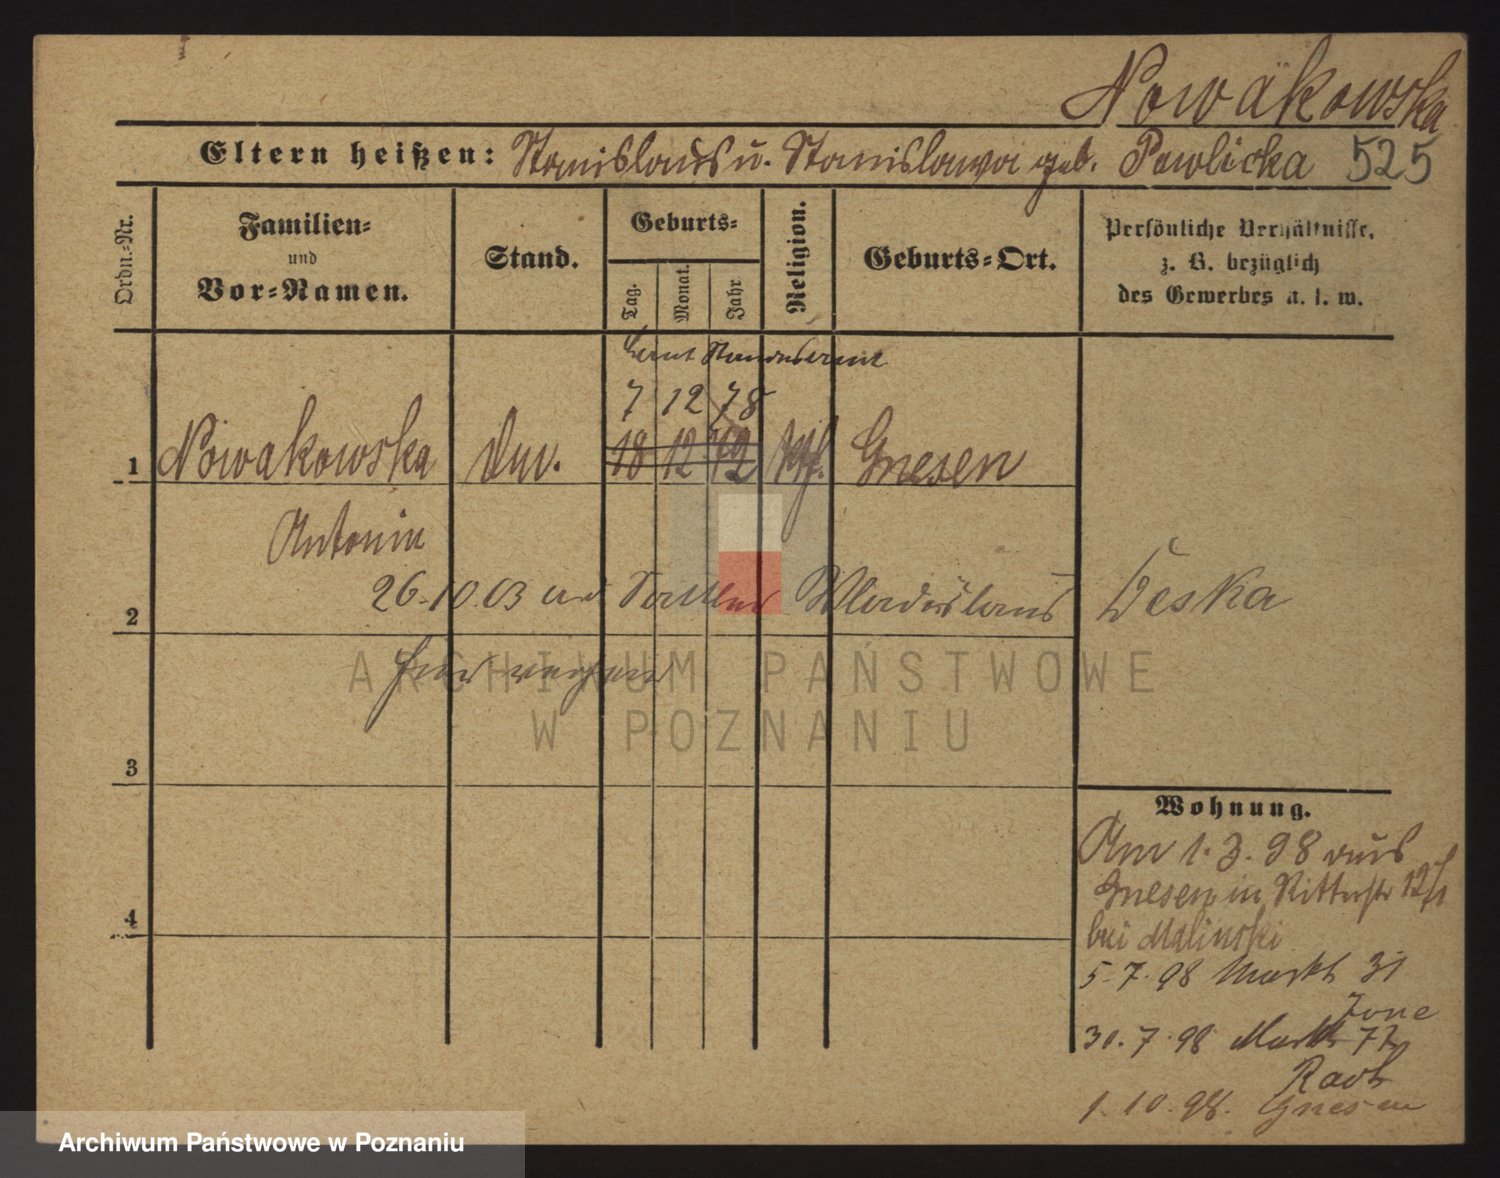 Nowakowska
Eltern heißen: Stanislaus u. Stanislawa geb. Pawlicka 525
Ordn.-Nr.
Familien- und Vor-Namen.
Stand.
Geburts-
Tag. Monat. Jahr
Religion.
Geburts-Ort.
Persönliche Verhältnisse,
z. B. bezüglich
des Gewerbes u. s. w.
laut Standesamt
7 12 78
1 Nowakowska 18 12 79 kth. Gnesen
Antonin
2 26.10.03 Sattler Wladislaus Deska
3
4
Wohnung.
Am 1.3.98 aus
Gnesen in Ritterstr 12/1
bei Malinski
5.7.98 Markt 31
30.7.98 Markt 77
1.10.98. Gnesen
ARCHIWUM PAŃSTWOWE
W POZNANIU
Archiwum Państwowe w Poznaniu